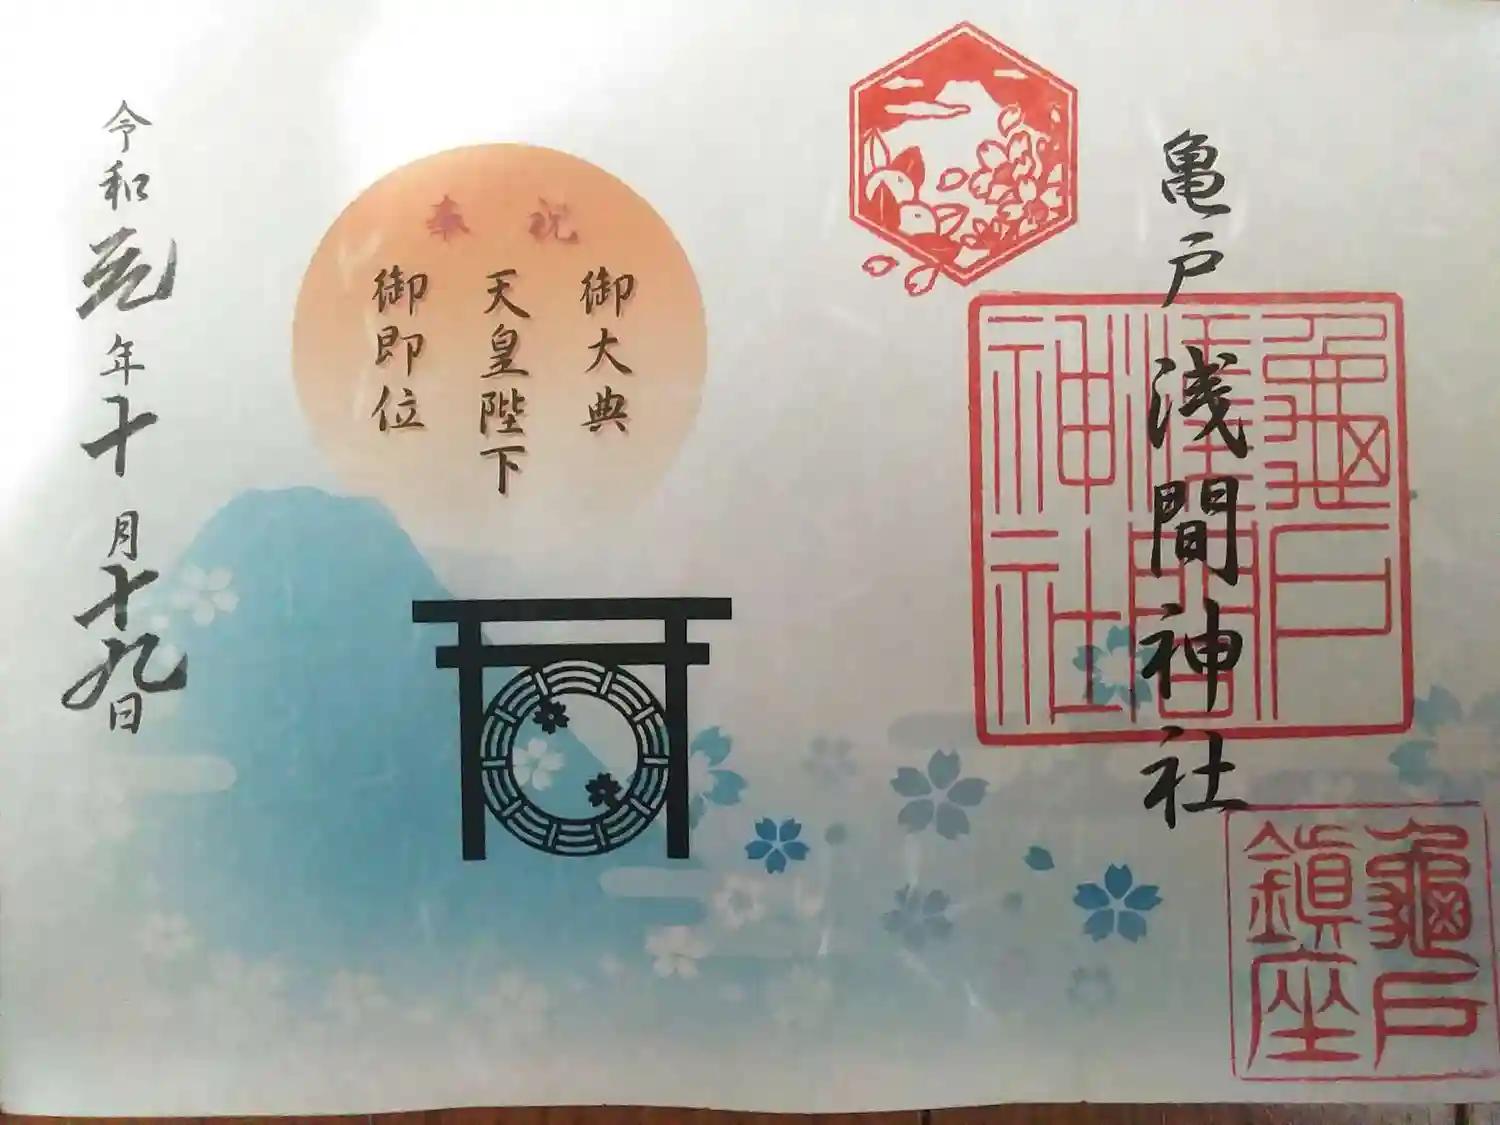 亀戸浅間神社
龜戸
淺間
神社
龜戸
鎮座
奉祝
御大典
天皇陛下
御即位
令和元年十月十九日